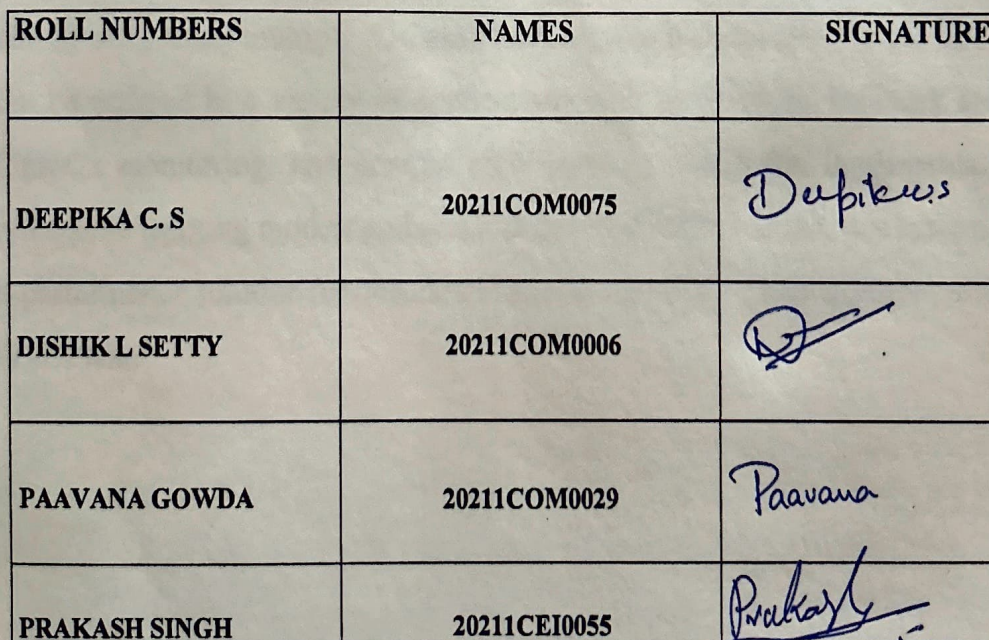 ROLL NUMBERS NAMES SIGNATURE
DEEPIKA C. S 20211COM0075 Deepika c.s
DISHIK L SETTY 20211COM0006
PAAVANA GOWDA 20211COM0029 Paavana
PRAKASH SINGH 20211CEI0055 Prakash